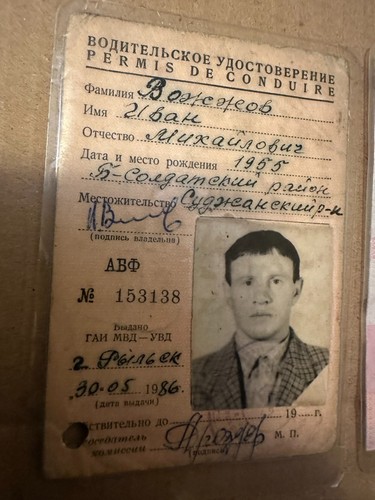 ВОДИТЕЛЬСКОЕ УДОСТОВЕРЕНИЕ
PERMIS DE CONDUIRE
Фамилия Вожжов
Имя Иван
Отчество Михайлович
Дата и место рождения 1955
Б-Солдатский район
Местожительство Суджанский р-н
(подпись владельца)
АБФ
№ 153138
Выдано
ГАИ МВД—УВД
г. Рыльск
30.05 1986 г.
(дата выдачи)
ствительно до 19 г.
седатель
комиссии (подпись) М. П.